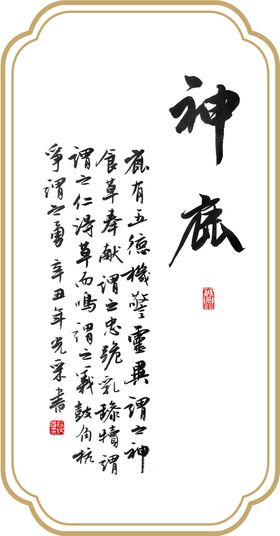 神鹿
鹿有五德機警靈異謂之神
食草奉献謂之忠跪乳舔犢謂
之仁得草而鳴謂之義鼓角抗
爭謂之勇 辛丑年光榮書